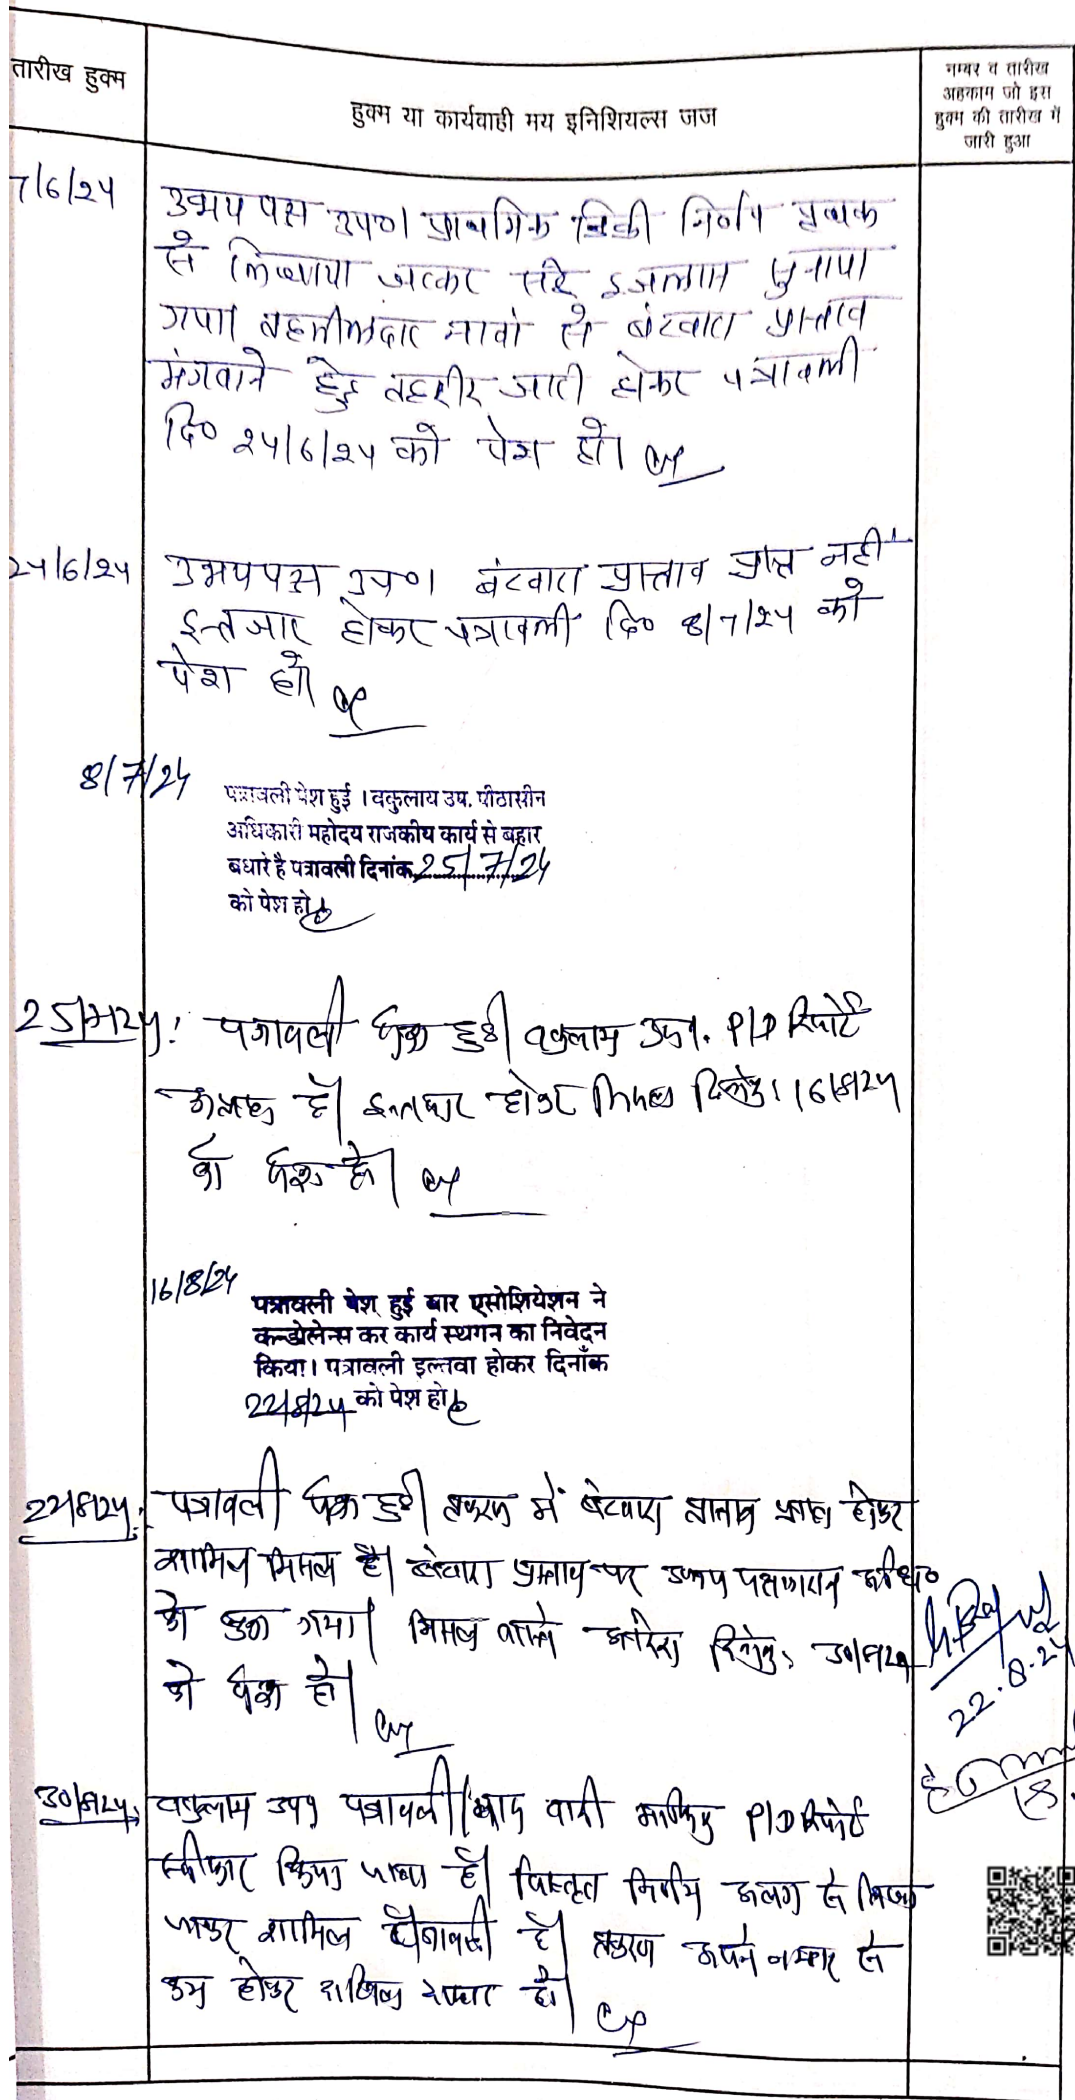 तारीख हुक्म
हुक्म या कार्यवाही मय इनिशियल्स जज
नम्बर व तारीख
अहकाम जो इस
हुक्म की तारीख में
जारी हुआ
7/6/24
उभय पक्ष उप०। प्राथमिक डिक्री निर्णय पृथक
से लिखाया जाकर सरे इजलास सुनाया
गया। तहसीलदार मावां से बंटवारा प्रस्ताव
मंगवाने हेतु तहरीर जारी होकर पत्रावली
दि० 24/6/24 को पेश हो।
24/6/24
उभयपक्ष उप०। बंटवारा प्रस्ताव प्राप्त नहीं
इन्तजार होकर पत्रावली दि० 8/7/24 को
पेश हो।
8/7/24
पत्रावली पेश हुई । वकुलाय उप. पीठासीन
अधिकारी महोदय राजकीय कार्य से बहार
बधारे है पत्रावली दिनांक 25/7/24
को पेश हो
25/7/24:
पत्रावली पेश हुई। वकुलाय उप. P/D रिपोर्ट
है। इन्तजार होकर मिसल दिनांक 16/8/24
को पेश हो।
16/8/24
पत्रावली पेश हुई बार एसोशियेशन ने
कन्डोलेन्स कर कार्य स्थगन का निवेदन
किया। पत्रावली इल्तवा होकर दिनाँक
22/8/24 को पेश हो
22/8/24:
पत्रावली पेश हुई। प्रकरण में बंटवारा प्रस्ताव प्राप्त होकर
शामिल मिसल है। बंटवारा प्रस्ताव पर उभय पक्षकारान
को सुना गया। मिसल वास्ते आदेश दिनांक 30/8/24
को पेश हो।
22.8.24
30/8/24
वकुलाय उप० पत्रावली। वाद वादी माफिक P/D रिपोर्ट
स्वीकार किया जाता है। विस्तृत निर्णय अलग से लिखा
जाकर शामिल पत्रावली है। प्रकरण अपने नम्बर से
कम होकर दाखिल दफ्तर हो।